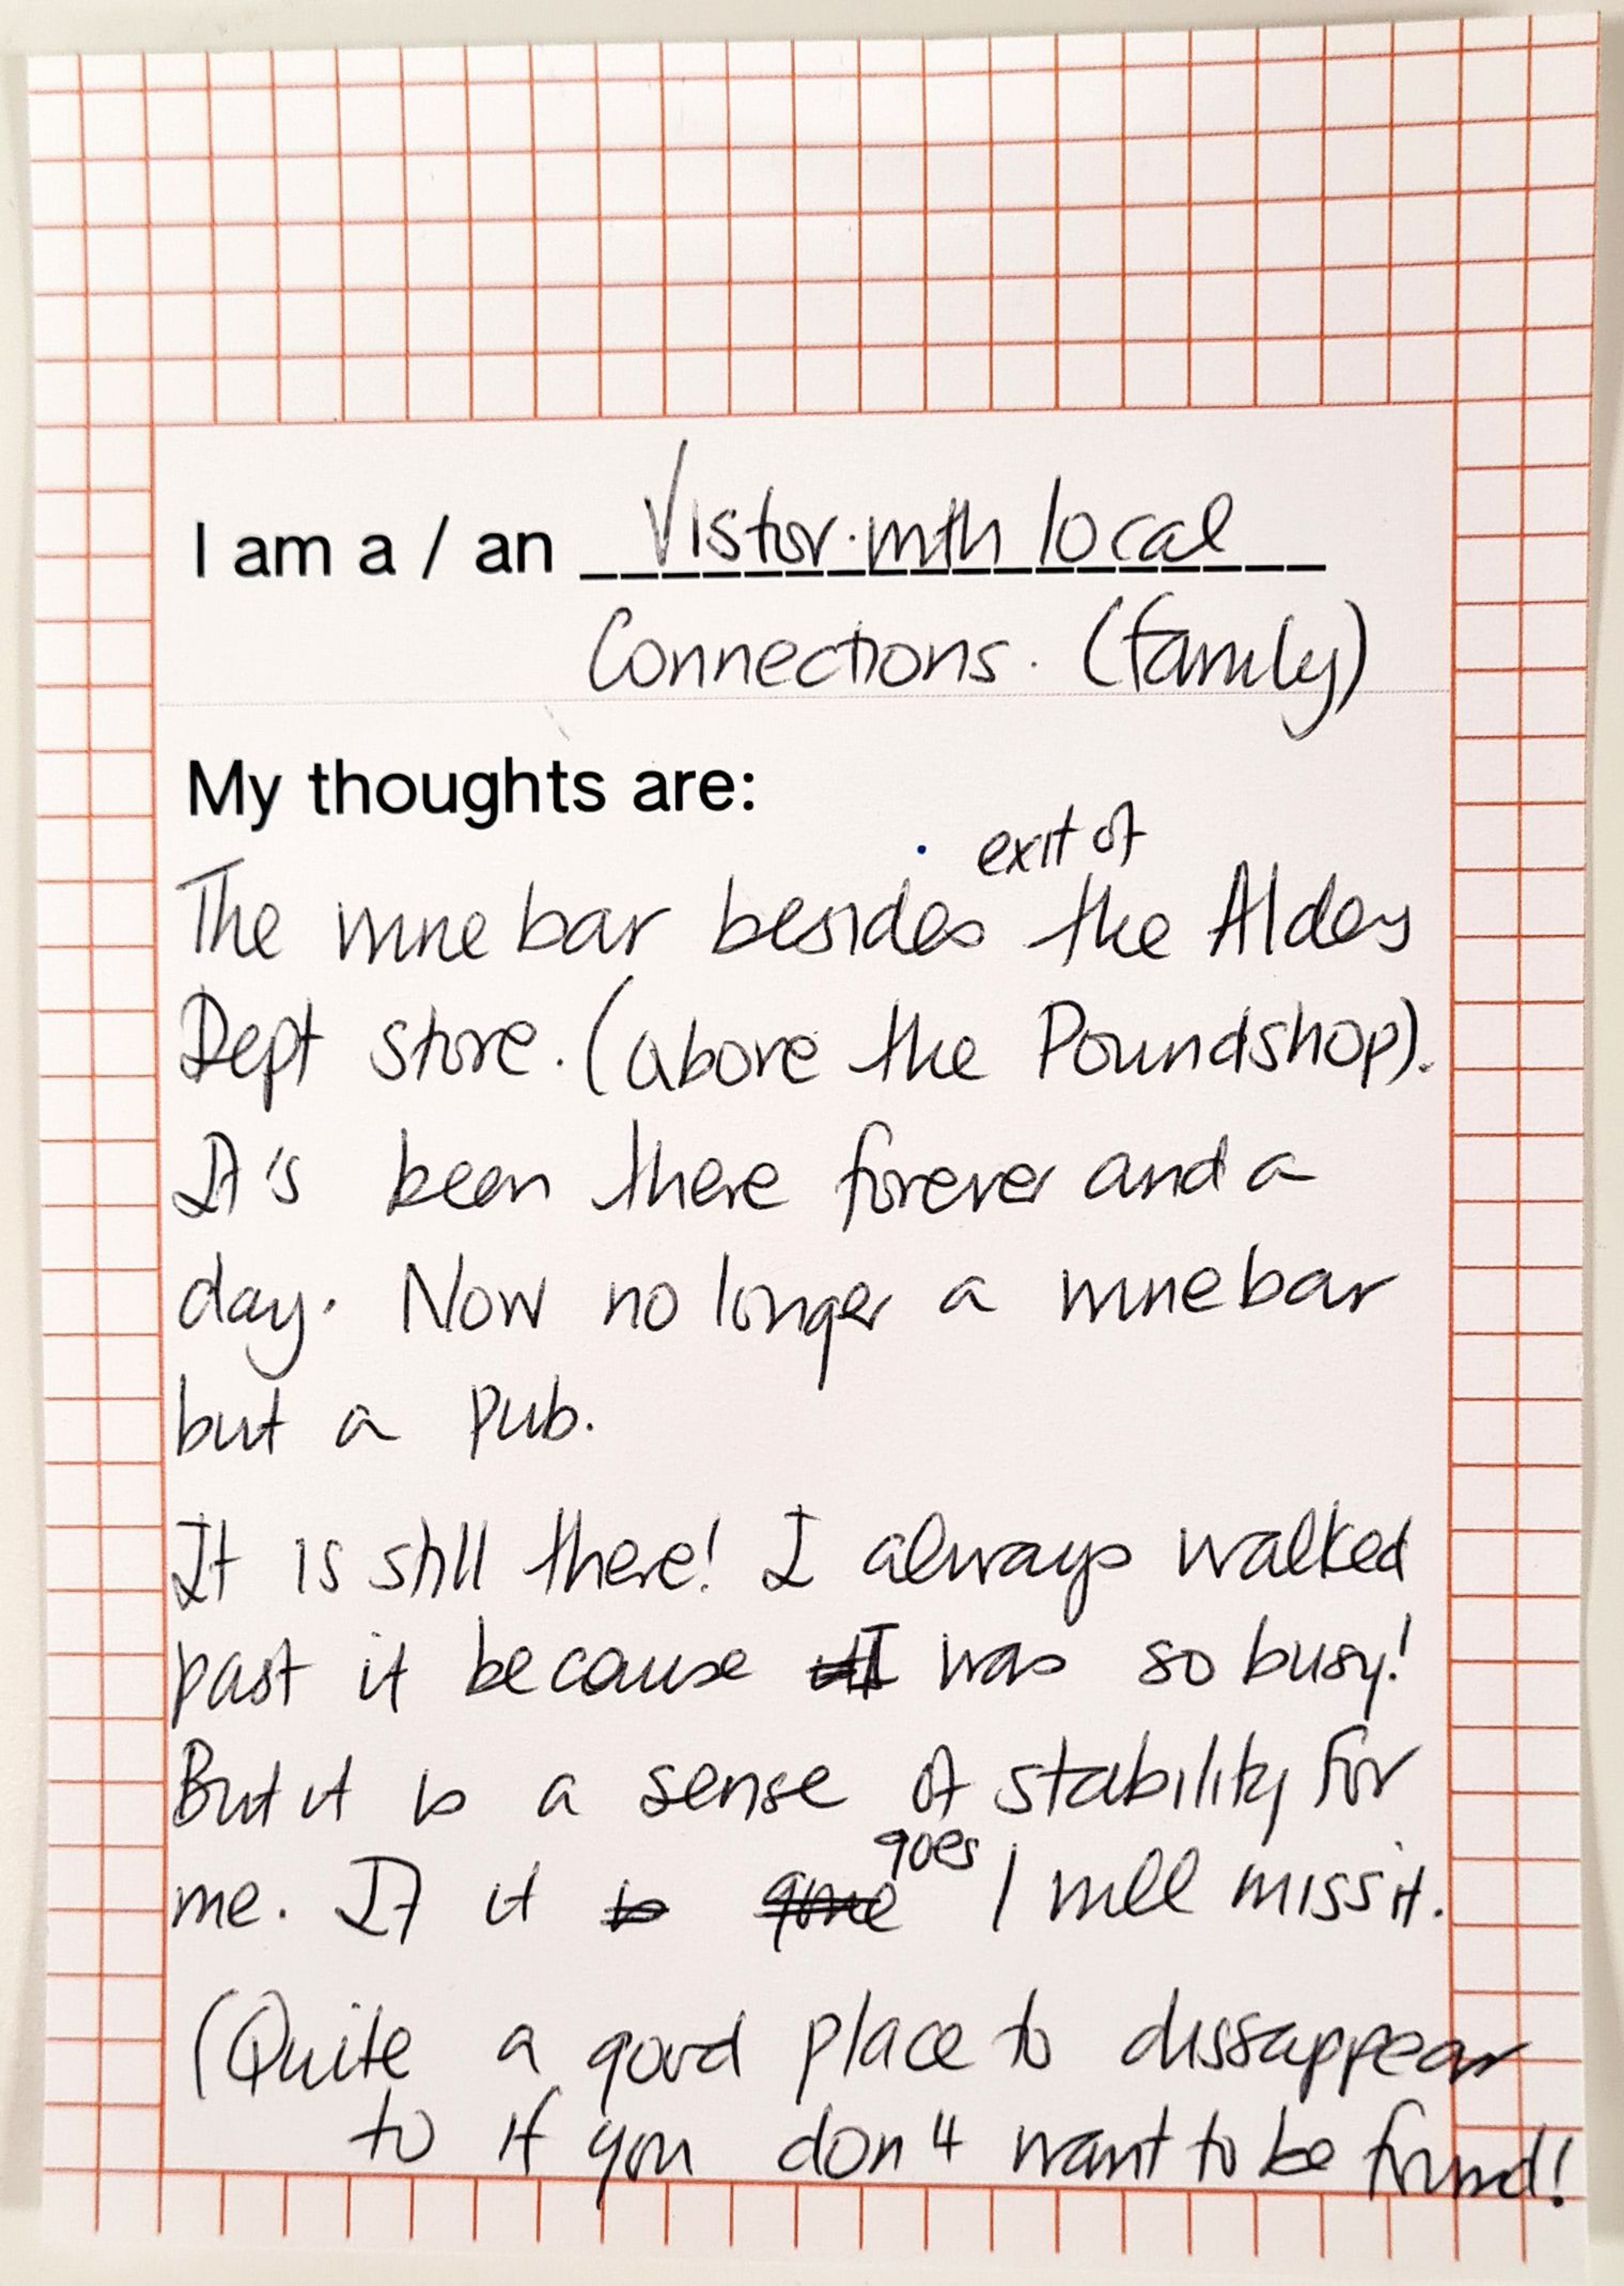 I am a / an Vistor. with local
Connections. (family)
My thoughts are:
exit of
The wine bar besides the Aldays
Dept store. (above the Poundshop).
It's been there forever and a
day. Now no longer a wine bar
but a pub.
It is still there! I always walked
past it because I was so busy!
But it is a sense of stability for
goes
me. If it is gone I will miss it.
(Quite a good place to dissappear
to if you don't want to be found!